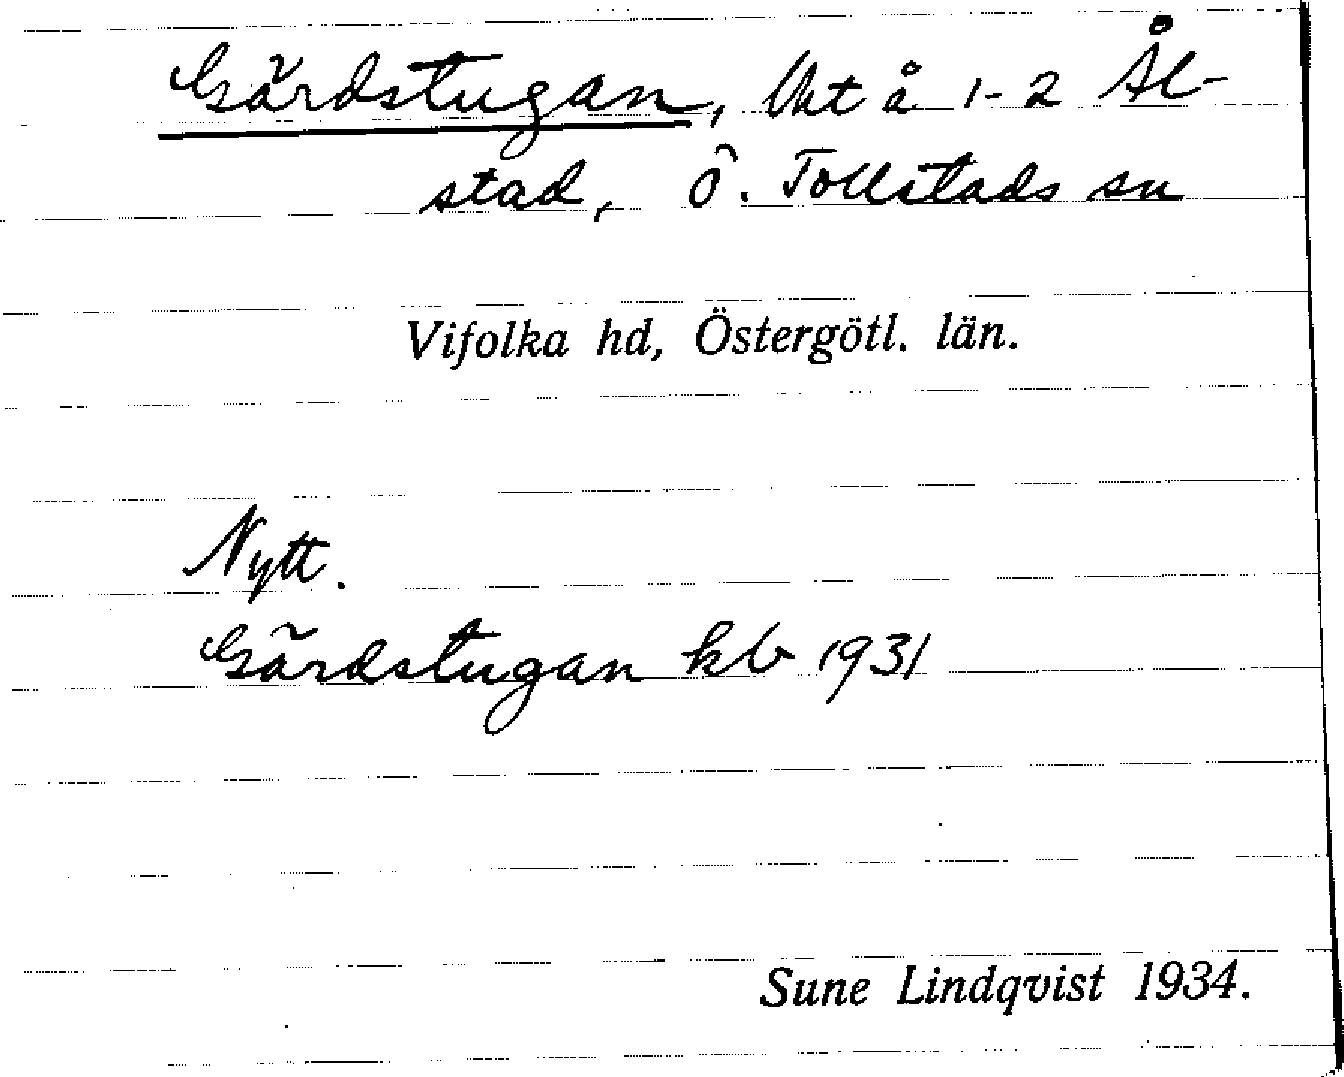 Gärdstugan, lht å 1-2 Ål-
stad, Ö. Tollstads sn
Vifolka hd, Östergötl. län.
Nytt.
Gärdstugan kb 1931
Sune Lindqvist 1934.